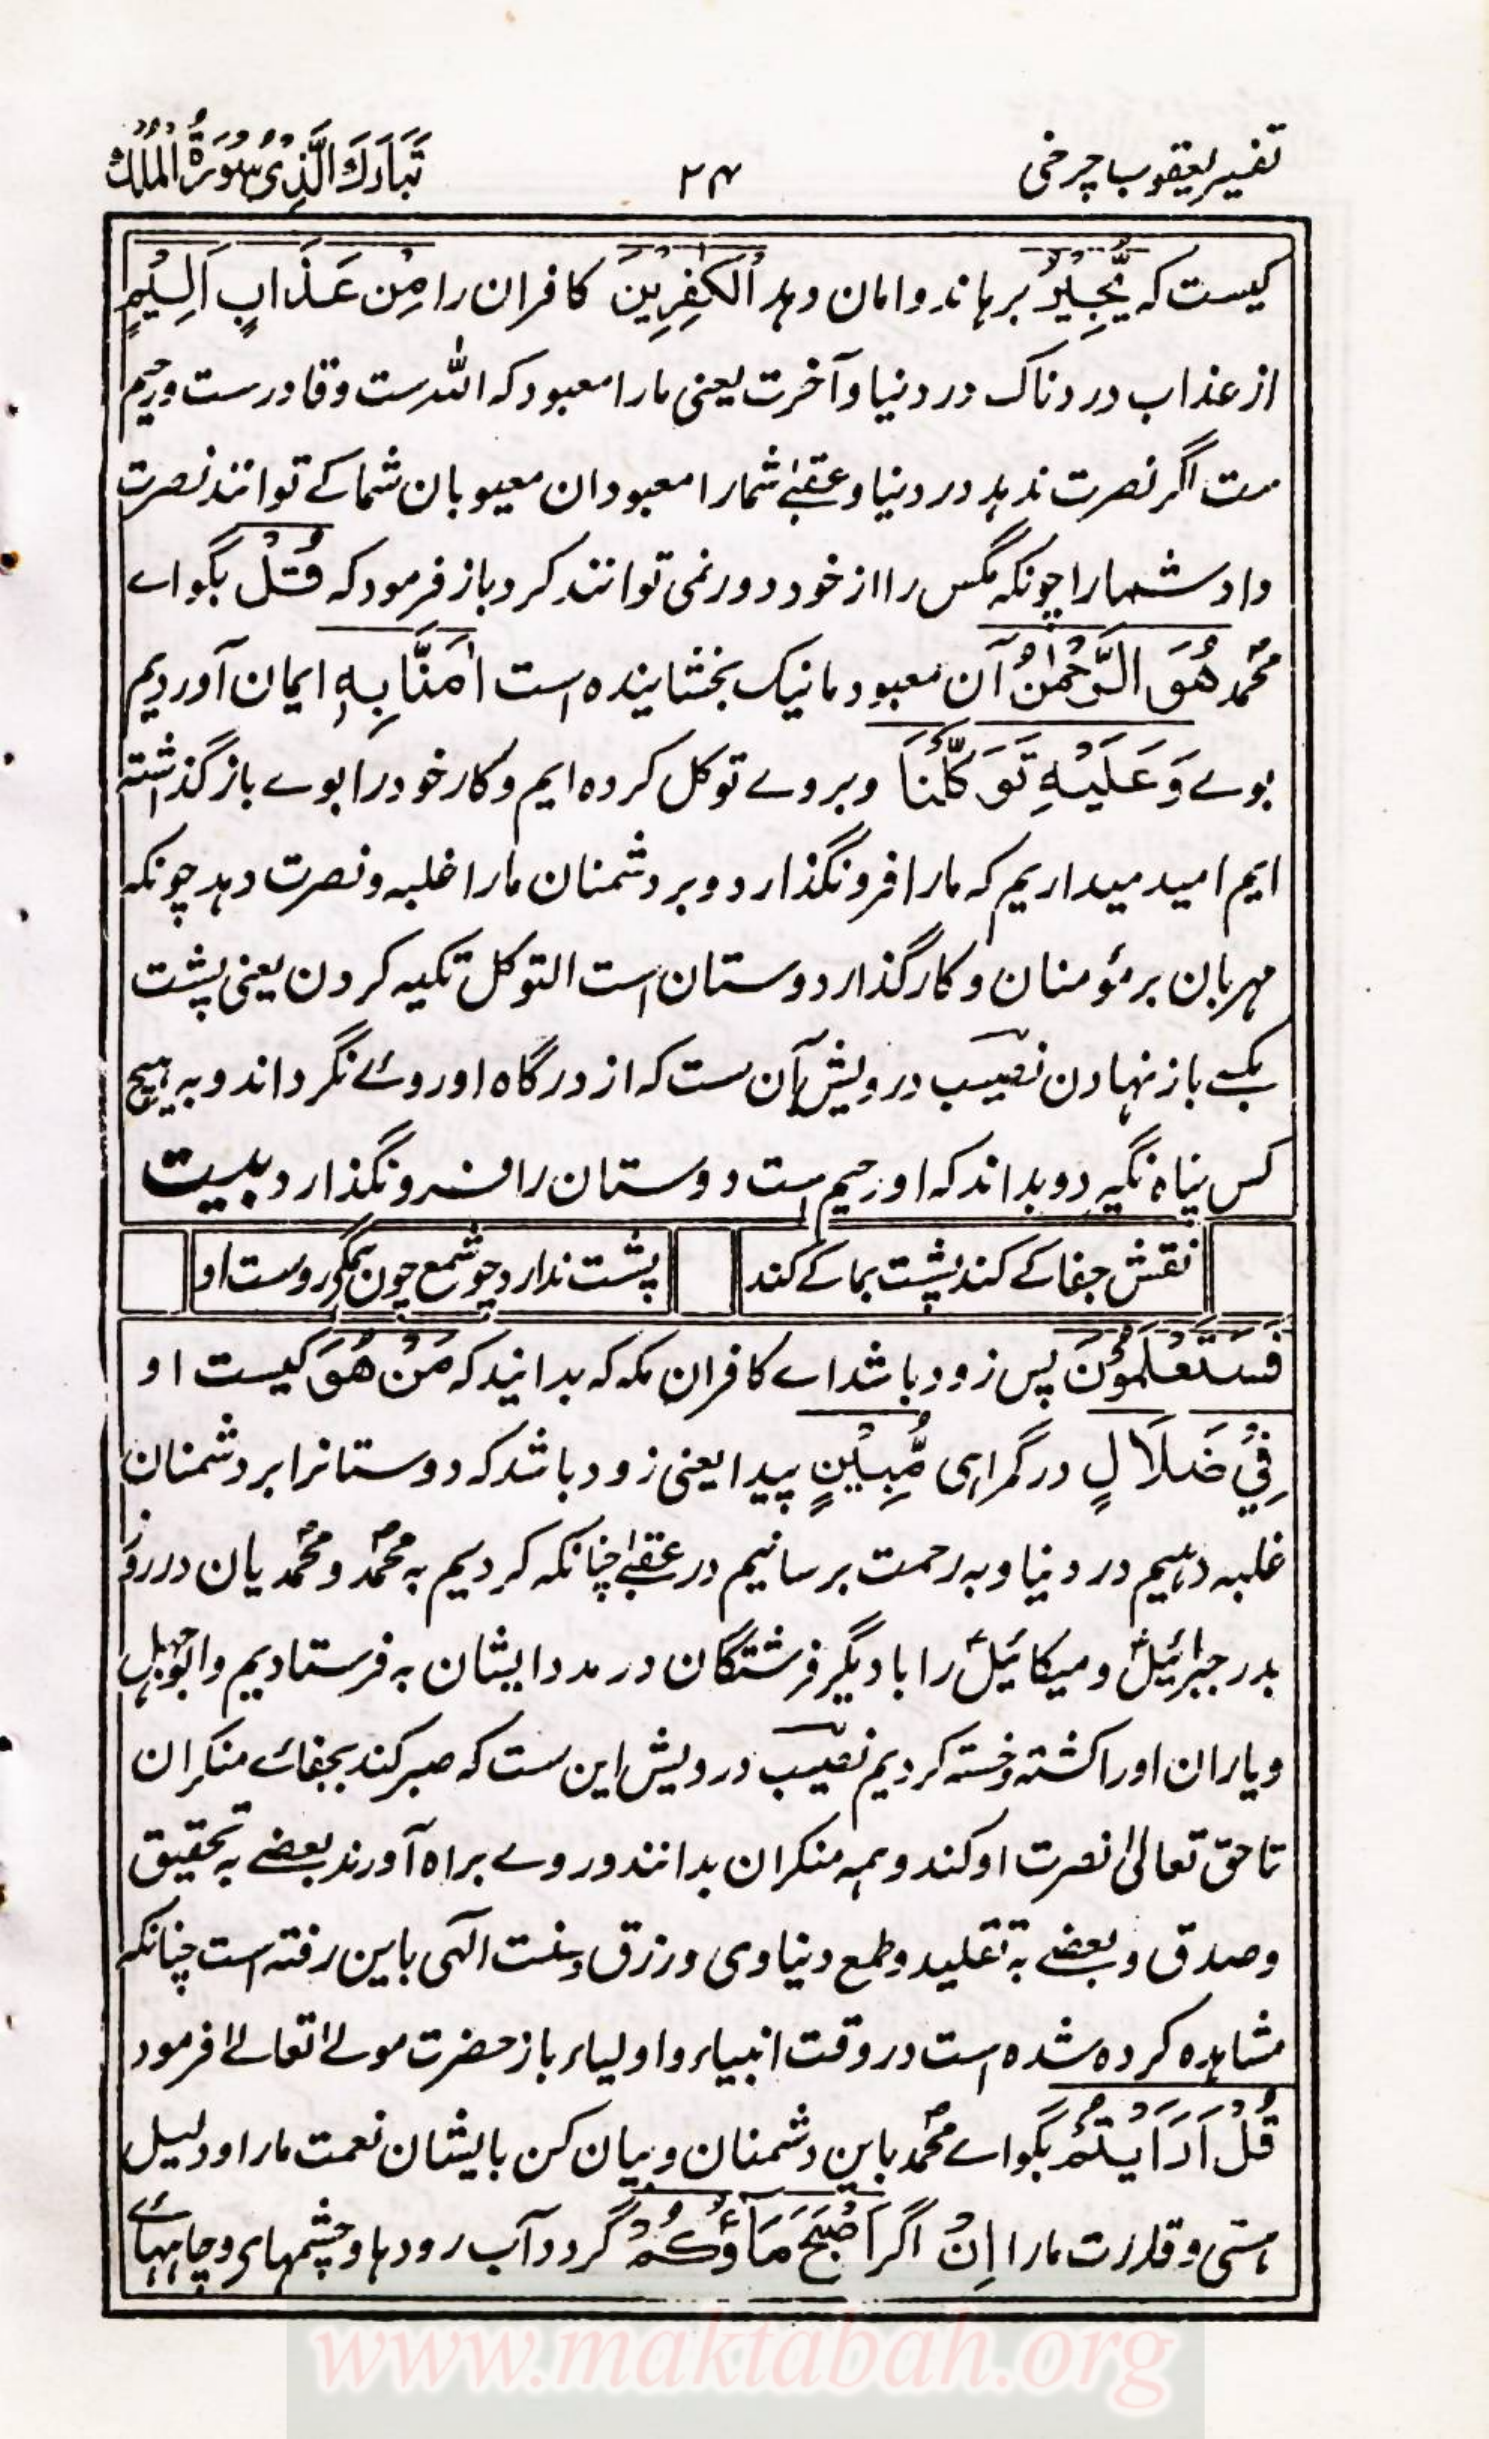 تفسیر یعقوب چرخی
۲۴
تَبَارَكَ الَّذِیْ سُوْرَةُ الْمُلْكُ
کیست کہ یُّجِیْرُ برہاند و امان دہد الْکٰفِرِیْنَ کافران را مِنْ عَذَابٍ اَلِیْمٍ
از عذاب دردناک در دنیا و آخرت یعنی مارا معبود کہ اللہ ست و قادرست و رحیم
ست اگر نصرت ندہد در دنیا و عقبےٰ شمارا معبودان معیوبان شما کے توانند نصرت
داد شمارا چونکہ مگس را از خود دور نمی توانند کرد باز فرمود کہ قُلْ بگو اے
محمدؐ هُوَ الرَّحْمٰنُ آن معبود ما نیک بخشایندہ است اٰمَنَّا بِهٖ ایمان آوردیم
بوے وَ عَلَیْهِ تَوَكَّلْنَا و بروے توکل کردہ ایم و کار خود را بوے باز گذاشتہ
ایم امید میداریم کہ مارا فرو نگذارد و بر دشمنان مارا غلبہ و نصرت دہد چونکہ
مہربان بر مؤمنان و کارگذار دوستان است التوکل تکیہ کردن یعنی پشت
بکسے باز نہادن نصیب درویش آن ست کہ از درگاہ او روئے نگرداند و بہ ہیچ
کس پناہ نگیرد و بداند کہ او رحیم است دوستان را فرو نگذارد بیت
نقش جفا کے کند پشت بما کے کند
پشت ندارد چو شمع چون ہمگی روست او
فَسَتَعْلَمُوْنَ پس زود باشد اے کافران مکہ کہ بدانید کہ مَنْ هُوَ کیست او
فِیْ ضَلَالٍ در گمراہی مُّبِیْنٍ پیدا یعنی زود باشد کہ دوستانرا بر دشمنان
غلبہ دہیم در دنیا و بہ رحمت برسانیم در عقبےٰ چنانکہ کردیم بہ محمدؐ و محمدؐیان در روز
بدر جبرائیلؑ و میکائیلؑ را با دیگر فرشتگان در مدد ایشان بہ فرستادیم و ابوجہل
و یاران او را کشتہ و خستہ کردیم نصیب درویش این ست کہ صبر کند بجفائے منکران
تا حق تعالیٰ نصرت او کند و ہمہ منکران بدانند و روے براہ آورند بعضے بہ تحقیق
و صدق و بعضے بہ تقلید و طمع دنیاوی و رزق و سنت الٰہی باین رفتہ است چنانکہ
مشاہدہ کردہ شدہ است در وقت انبیاء و اولیاء باز حضرت مولےٰ تعالےٰ فرمود
قُلْ اَرَاَیْتُمْ بگو اے محمدؐ باین دشمنان و بیان کن بایشان نعمت مارا و دلیل
ہستی و قدرت مارا اِنْ اگر اَصْبَحَ مَآؤُكُمْ گردد آب رودہا و چشمہای و چاہہائے
www.maktabah.org